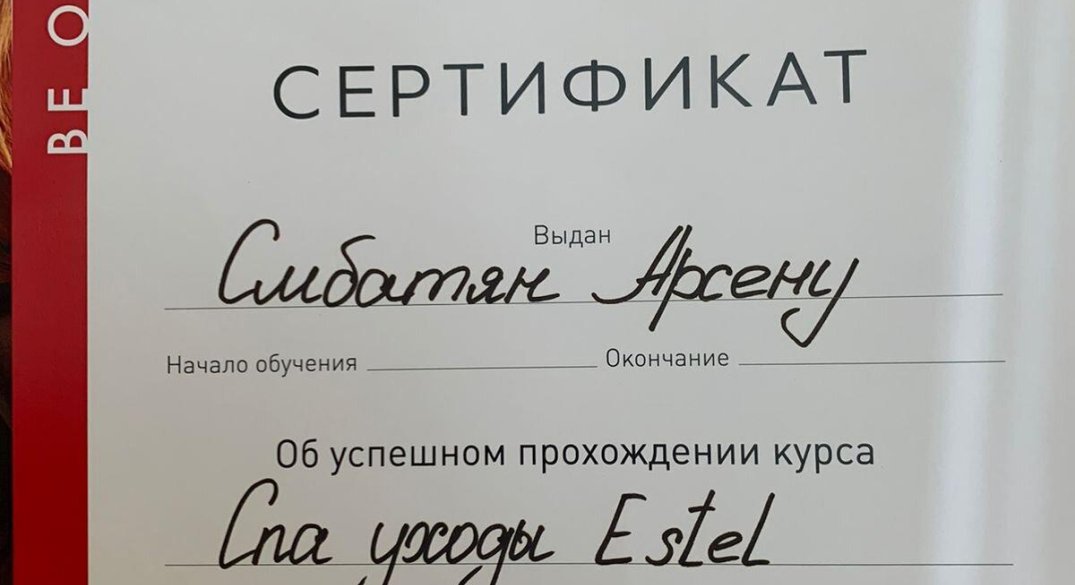 BE O
СЕРТИФИКАТ
Выдан
Смбатян Арсену
Начало обучения Окончание
Об успешном прохождении курса
Спа уходы Estel